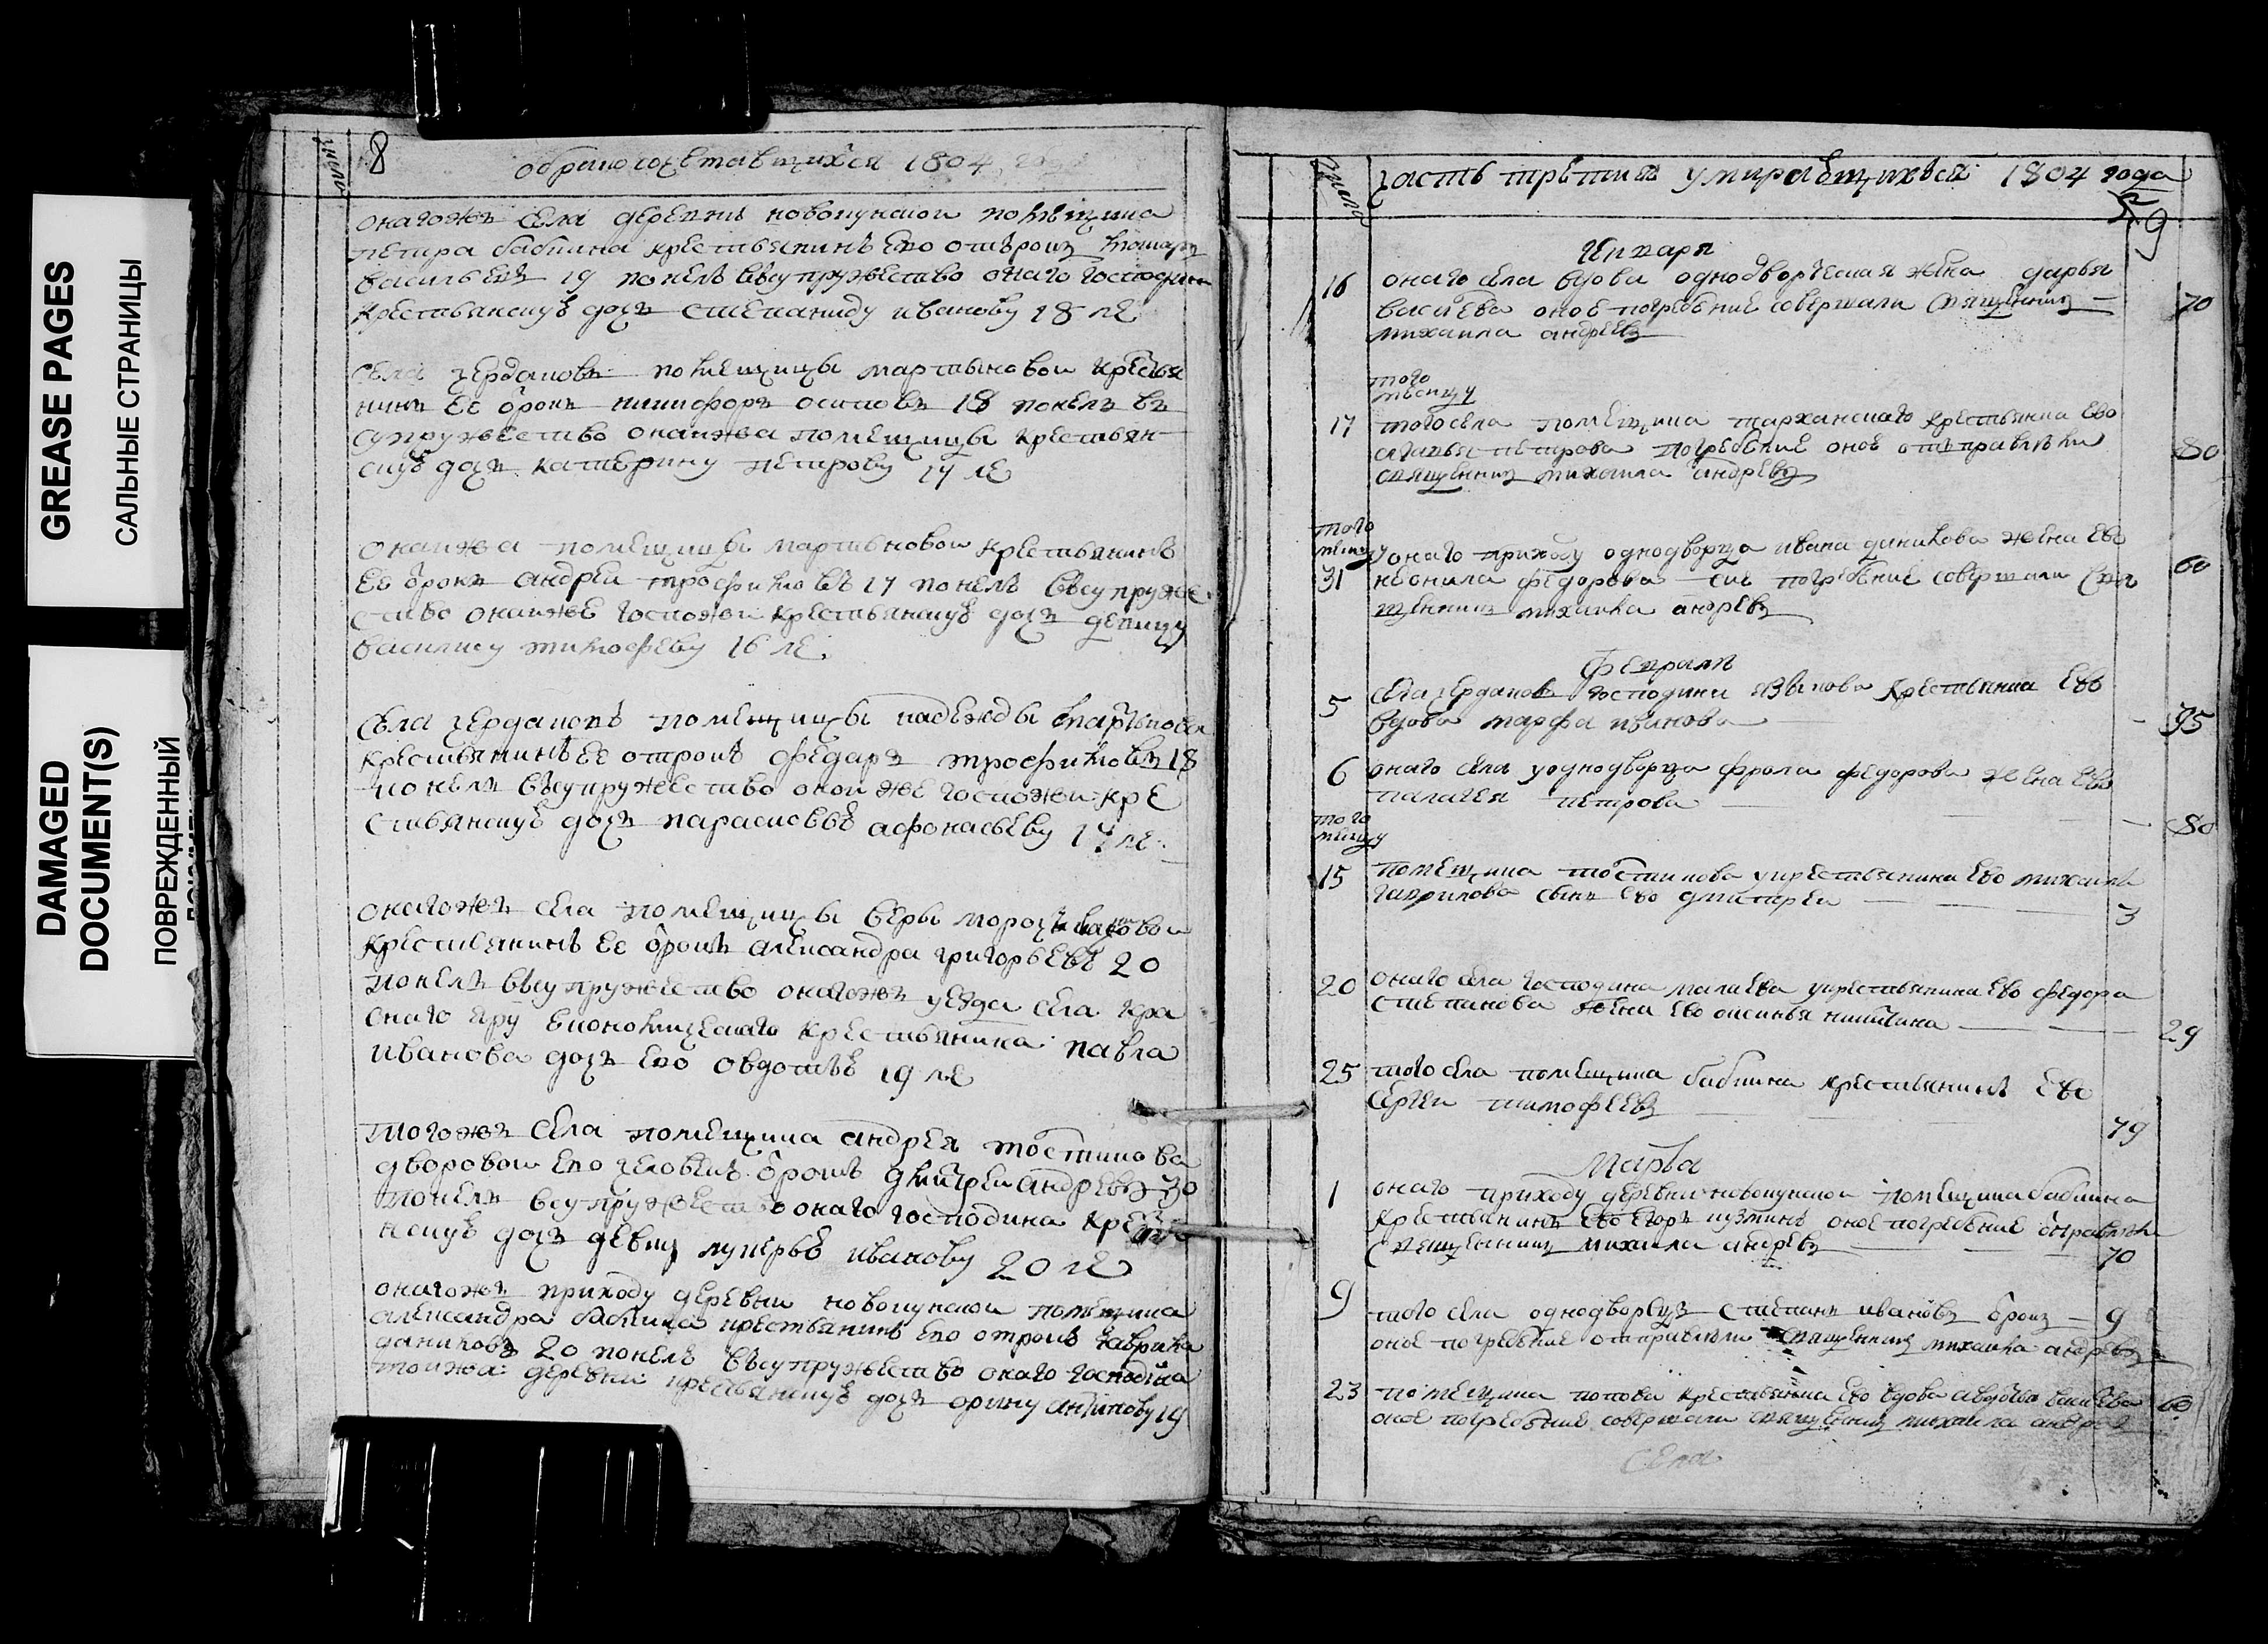 GREASE PAGES
САЛЬНЫЕ СТРАНИЦЫ
DAMAGED
DOCUMENT(S)
ПОВРЕЖДЕННЫЙ
число
8
обракосоЧетавшихся 1804 году
онагожъ села деревни новокунскои помещика
петра бабкина крестьянинъ ево отрокъ
васильевъ 19 понелъ въсупружество онаго господина
крестьянскуѣ дочь степаниду иванову 18 ле
села чердаковъ помещицы мартыновои крестья
нинъ ее отрокъ никифоръ осиповъ 18 понелъ въ
супружество онаижа помещицы крестьян
скуѣ дочь катерину петрову 17 ле
онаижа помещицы мартыновои крестьянинъ
ее отрокъ андреи трофимовъ 17 понелъ въсупруже
ство онаиже госпожи крестьянскуѣ дочь девицу
василису тимофеву 16 ле
села чердаковъ помещицы надежды мартыновои
крестьянинъ ее отрокъ федаръ трофимовъ 18
понелъ въсупружество онои же госпожи кре
стьянскуѣ дочь парасковьѣ афонасьеву 17 ле
онагожъ села помещицы веры
крестьянинъ ее отрокъ александра григорьевъ 20
понелъ въсупружество онагожъ уезда села кра
снаго яру економическаго крестьянина павла
иванова дочь ево овдотьѣ 19 ле
тогожъ села помещика андрея тостикова
дворовои ево человекъ отрокъ дмитреи андревъ 30
понелъ всупружество онаго господина крестья
нскуѣ дочь девку лукерьѣ иванову 20 ле
онагожъ приходу деревни новокунскои помещика
александра бабкина крестьянинъ ево отрокъ гаврила
даниловъ 20 понелъ въсупружество онаго господина
тоижа деревни крестьянскуѣ дочь орину антипову 19
число
часть третия умирающихъся 1804 года
9
Генваря
16 онаго села вдова однодворческая жена дарья
васиева оное погребение совершали священникъ 70
михаила андреевъ
того
месицу
17 того села помещика тарханскаго крестьянка ево
агафья петрова погребение оное отправляли 80
священникъ михаила андревъ
того
месицу
31 онаго приходу однодворца ивана диникова жена ево 60
неонила федорова сие погребение совершали свя
щенникъ михаила андревъ
Февраля
5 села чердаковъ господина языкова крестьянка ево
вдова марфа иванова 95
6 онаго села уоднодворца фрола федорова жена ево
палагея петрова 80
того
месицу
15 помещика тостикова укрестьянина ево михаила
гаврилова сынъ ево дмитреи 3
20 онаго села господина малаева укрестьянина ево федора
степанова жена ево оксинья никитина 29
25 того села помещика бабкина крестьянинъ ево
сергеи тимофеевъ 79
Марта
1 онаго приходу деревни новокунскои помещика бабкина
крестьянинъ ево егоръ кузминъ оное погребение отправляли
священникъ михаила андревъ 70
9 того села однодворецъ степанъ ивановъ отрокъ 9
оное погребение отправляли священникъ михаила андревъ
23 помещика попова крестьянка ево вдова авдотья васиева 60
оное погребение совершали священникъ михаила андревъ